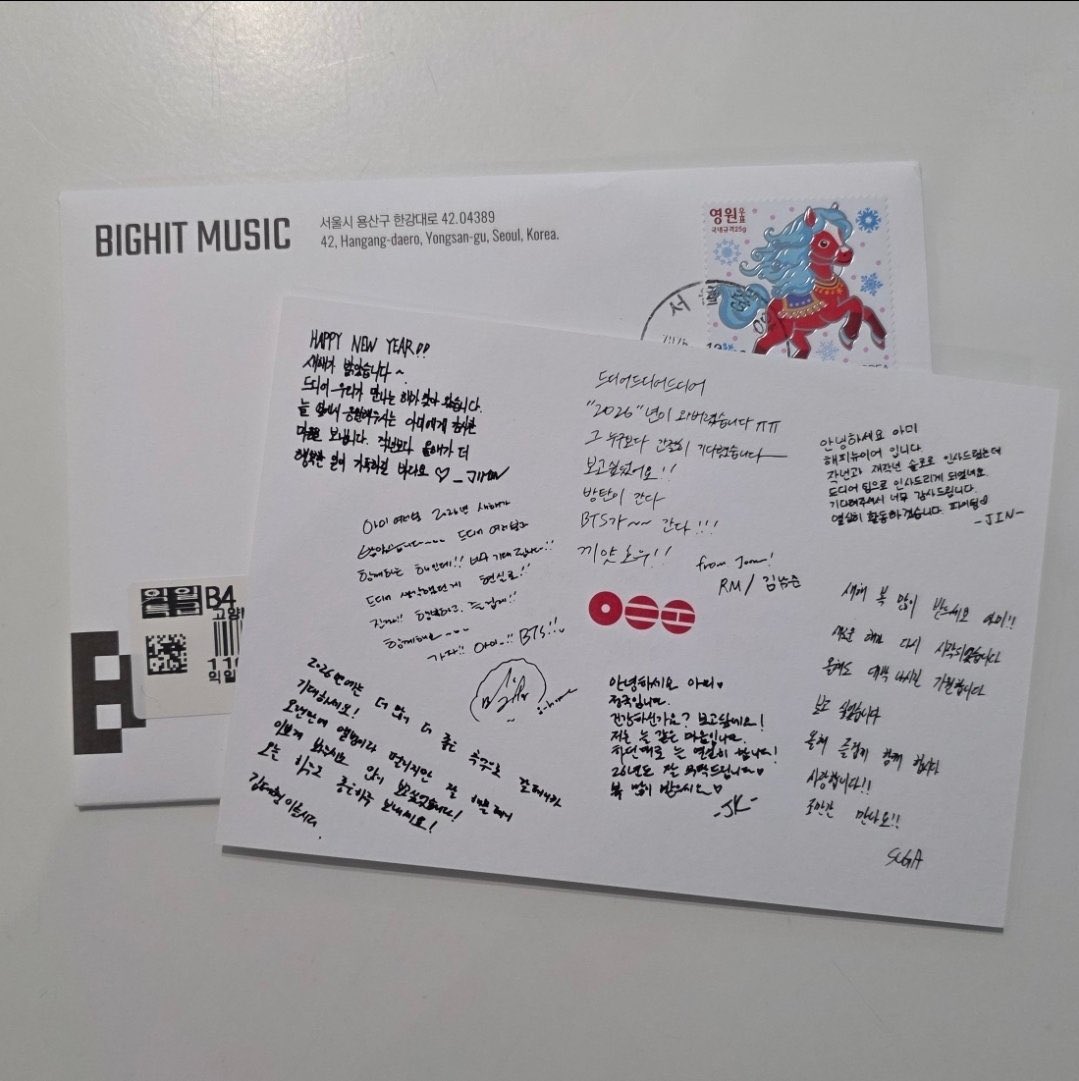 BIGHIT MUSIC
서울시 용산구 한강대로 42.04389
42, Hangang-daero, Yongsan-gu, Seoul, Korea.
영원우표
국내규격25g
서울
익일
특급
B4
고양
익일
HAPPY NEW YEAR!!
새해가 밝았습니다~
드디어 우리가 만나는 해가 찾아 왔습니다.
늘 옆에서 응원해주시는 아미에게 감사한
마음을 보냅니다. 작년보다 올해가 더
행복한 일이 가득하길 바라요 ♡ _JIMIN
드디어드디어드디어
"2026"년이 와버렸습니다 ㅠㅠ
그 누구보다 간절히 기다렸습니다
보고싶었어요!!
방탄이 간다
BTS가~~ 간다!!!
끼얏호우!!
from Joon!
RM / 김남준
안녕하세요 아미
해피뉴이어 입니다
작년과 재작년 솔로로 인사드렸는데
드디어 팀으로 인사드리게 되었네요
기다려주셔서 너무 감사드립니다.
열심히 활동하겠습니다 파이팅
-JIN-
아미 여러분 2026년 새해가
밝았습니다~~~ 드디어 여러분과
함께하는 해인데!! 너무 기대됩니다!!
드디어 생각했던게 현실로!!
진짜!! 행복하고, 즐겁게!!
함께해요~~~
가자!! 아미..!! BTS!!
새해 복 많이 받으세요 아미!!
새로운 해가 다시 시작되었습니다
올해도 대박 나시길 기원합니다
보고 싶었습니다
올해 즐겁게 함께 합시다
사랑합니다!!
조만간 만나요!!
SUGA
2026년에는 더 많이 더 좋은 추억으로 함께해요
기대하세요!
오랜만에 앨범이라
이쁘게 봐주시요 많이 보고싶었습니다!
오늘 하루도 좋은하루 보내세요!
김태형 이였습니다.
안녕하세요 아미♥
정국입니다.
건강하신가요? 보고싶네요!
저는 늘 같은 마음입니다.
하던대로 늘 열심히 합니다!
26년도 잘 부탁드립니다♥
복 많이 받으세요♡
-JK-